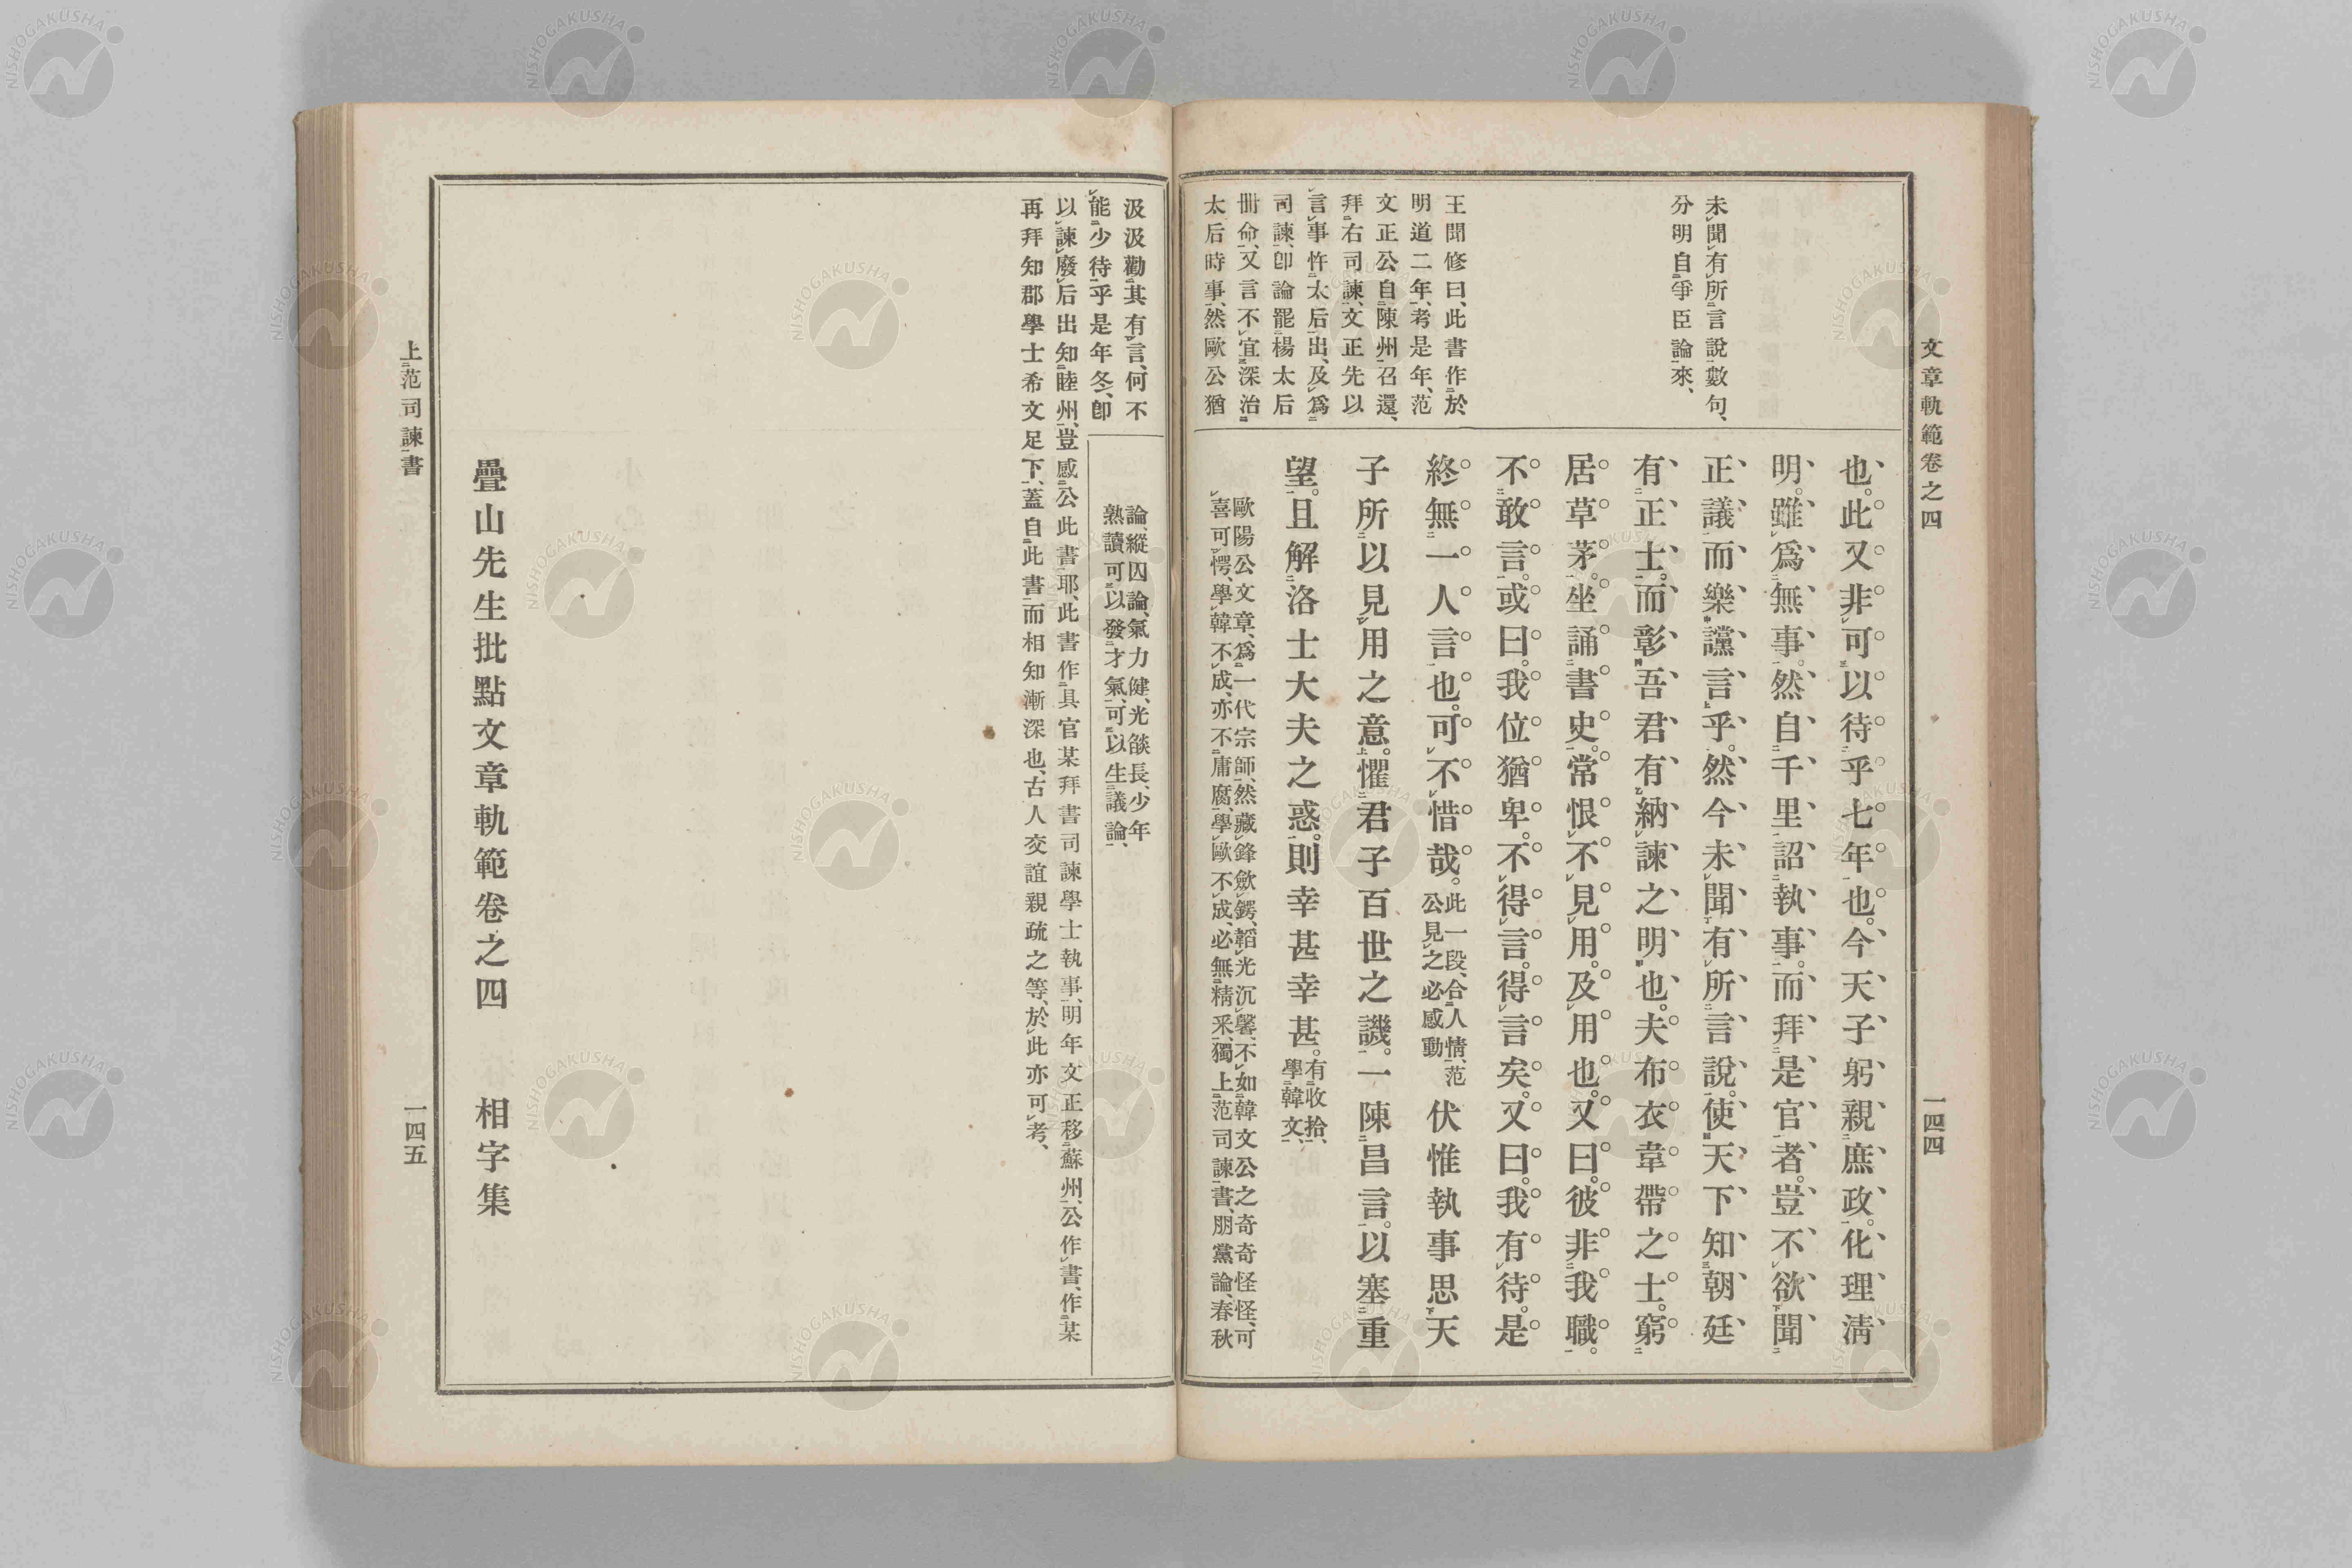 文章軌範卷之四
一四四
未聞有所言說數句、
分明自爭臣論來、
王聞修曰、此書作於
明道二年、考是年、范
文正公自陳州召還、
拜右司諫、文正先以
言事忤太后出、及爲
司諫、卽論罷楊太后
冊命、又言不宜深治
太后時事、然歐公猶
也。此又非可以待乎七年也。今天子躬親庶政。化理淸
明。雖爲無事。然自千里詔執事。而拜是官者。豈不欲聞
正議而樂讜言乎。然今未聞有所言說。使天下知朝廷
有正士。而彰吾君有納諫之明也。夫布衣韋帶之士。窮
居草茅。坐誦書史。常恨不見用。及用也。又曰。彼非我職。
不敢言。或曰。我位猶卑。不得言。得言矣。又曰。我有待。是
終無一人言也。可不惜哉。此一段、合人情、范公見之必感動伏惟執事思天
子所以見用之意。懼君子百世之譏。一陳昌言。以塞重
望。且解洛士大夫之惑。則幸甚幸甚。有收拾、學韓文、
歐陽公文章、爲一代宗師、然藏鋒斂鍔、韜光沉馨、不如韓文公之奇奇怪怪、可
喜可愕、學韓不成、亦不庸腐、學歐不成、必無精釆、獨上范司諫書、朋黨論、春秋
汲汲勸其有言、何不
能少待乎是年冬、卽
論、縱囚論、氣力健、光燄長、少年
熟讀可以發才氣、可以生議論、
以諫廢后出知睦州、豈感公此書耶、此書作具官某拜書司諫學士執事、明年文正移蘇州、公作書、作某
再拜知郡學士希文足下、蓋自此書而相知漸深也、古人交誼親疏之等、於此亦可考、
疊山先生批點文章軌範卷之四　相字集
上范司諫書
一四五